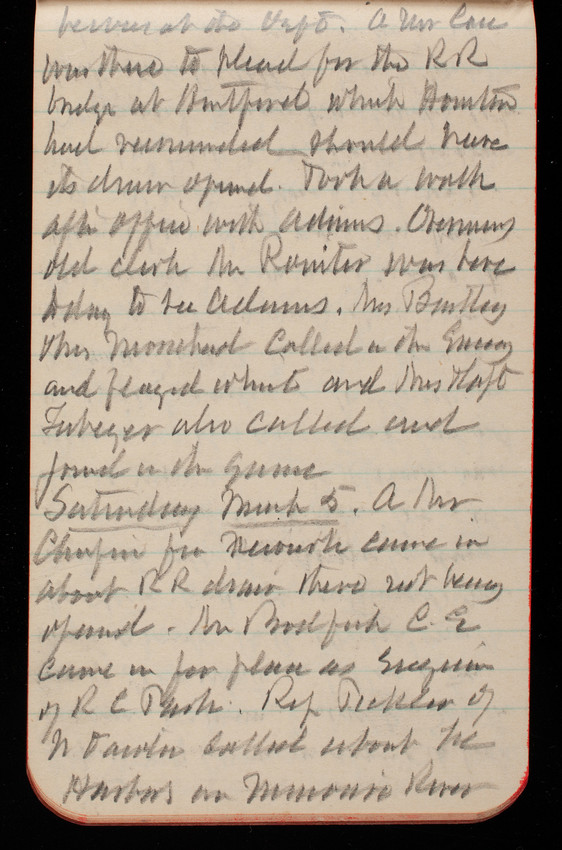 at the Dept. A Mr
was there to plead for the RR
bridge at which Houston
had recommended should have
its draw opened. Took a walk
after office with Adams. Overmans
old clerk Mr was here
today to see Adams. Mrs Bentley
Mrs Moorehead called in the Evening
and played whist and Mrs
also called and
joined in the game
Saturday March 5. A Mr
Chapin from Newark came in
about RR draw there not being
opened. Mr C.E
came in for place as Engineer
of R C Park. Rep Pickler of
called about the
Harbors on Missouri River